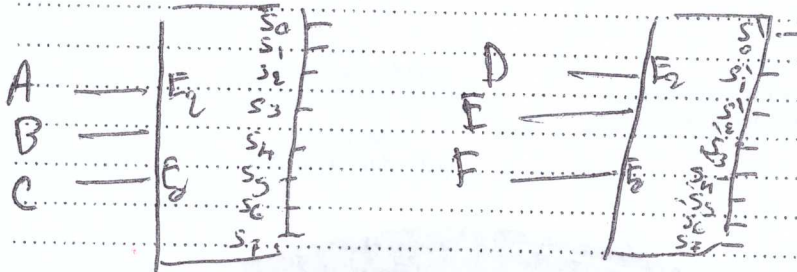 A
B
C
E2
E0
S0
S1
S2
S3
S4
S5
S6
S7
D
E
F
E2
E0
S'0
S'1
S'2
S'3
S'4
S'5
S'6
S'7